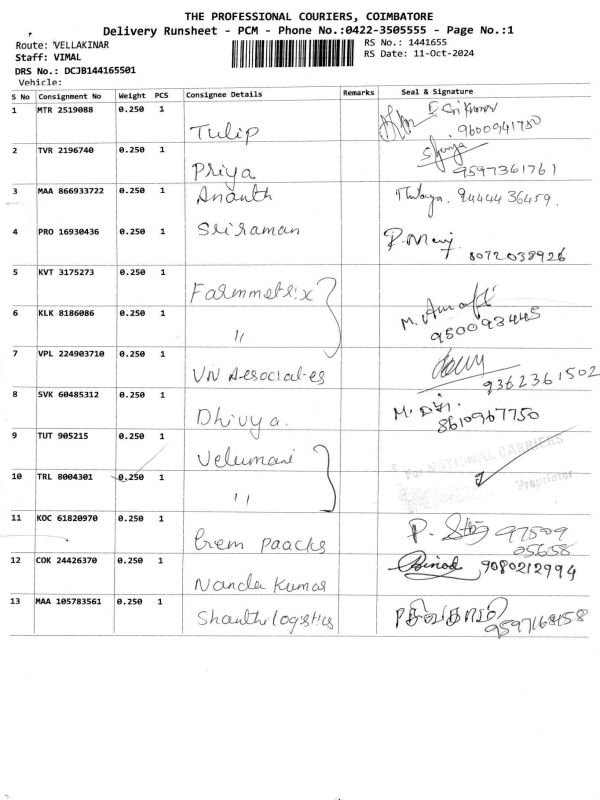 THE PROFESSIONAL COURIERS, COIMBATORE
Delivery Runsheet - PCM - Phone No.:0422-3505555 - Page No.:1
Route: VELLAKINAR
RS No.: 1441655
Staff: VIMAL
RS Date: 11-Oct-2024
DRS No.: DCJB144165501
Vehicle:
S No Consignment No Weight PCS Consignee Details Remarks Seal & Signature
1 MTR 2519088 0.250 1 Tulip 9600941780
2 TVR 2196740 0.250 1 Priya 9597361761
3 MAA 866933722 0.250 1 Ananth 9444436459
4 PRO 16930436 0.250 1 Sriraman 8072038926
5 KVT 3175273 0.250 1 Farmmetrix
6 KLK 8186086 0.250 1 " 9500093445
7 VPL 224903710 0.250 1 VN Associates 9362361502
8 SVK 60485312 0.250 1 Dhivya. 8610967750
9 TUT 905215 0.250 1 Velumani For NATIONAL CARRIERS
10 TRL 8004301 0.250 1 " Proprietor
11 KOC 61820970 0.250 1 Gem paacks 97509
05658
12 COK 24426370 0.250 1 Nanda Kumar Binod 9080212994
13 MAA 105783561 0.250 1 Shanthi logistics 9597168158